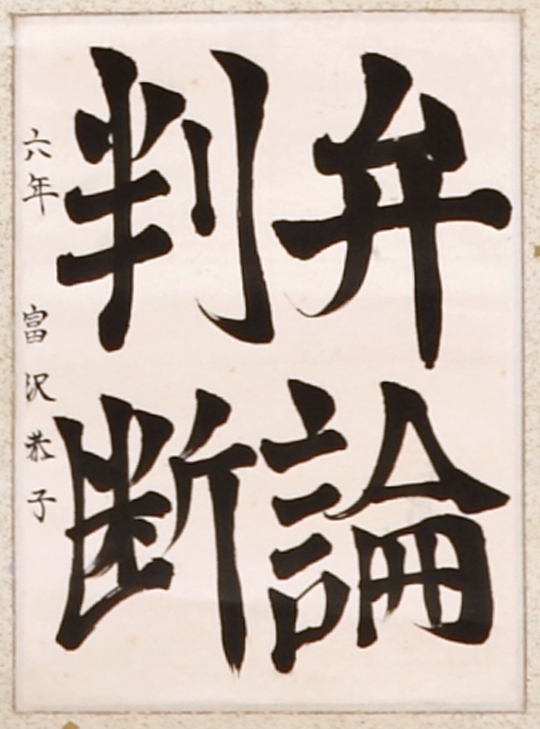 弁論
判断
六年 富沢恭子